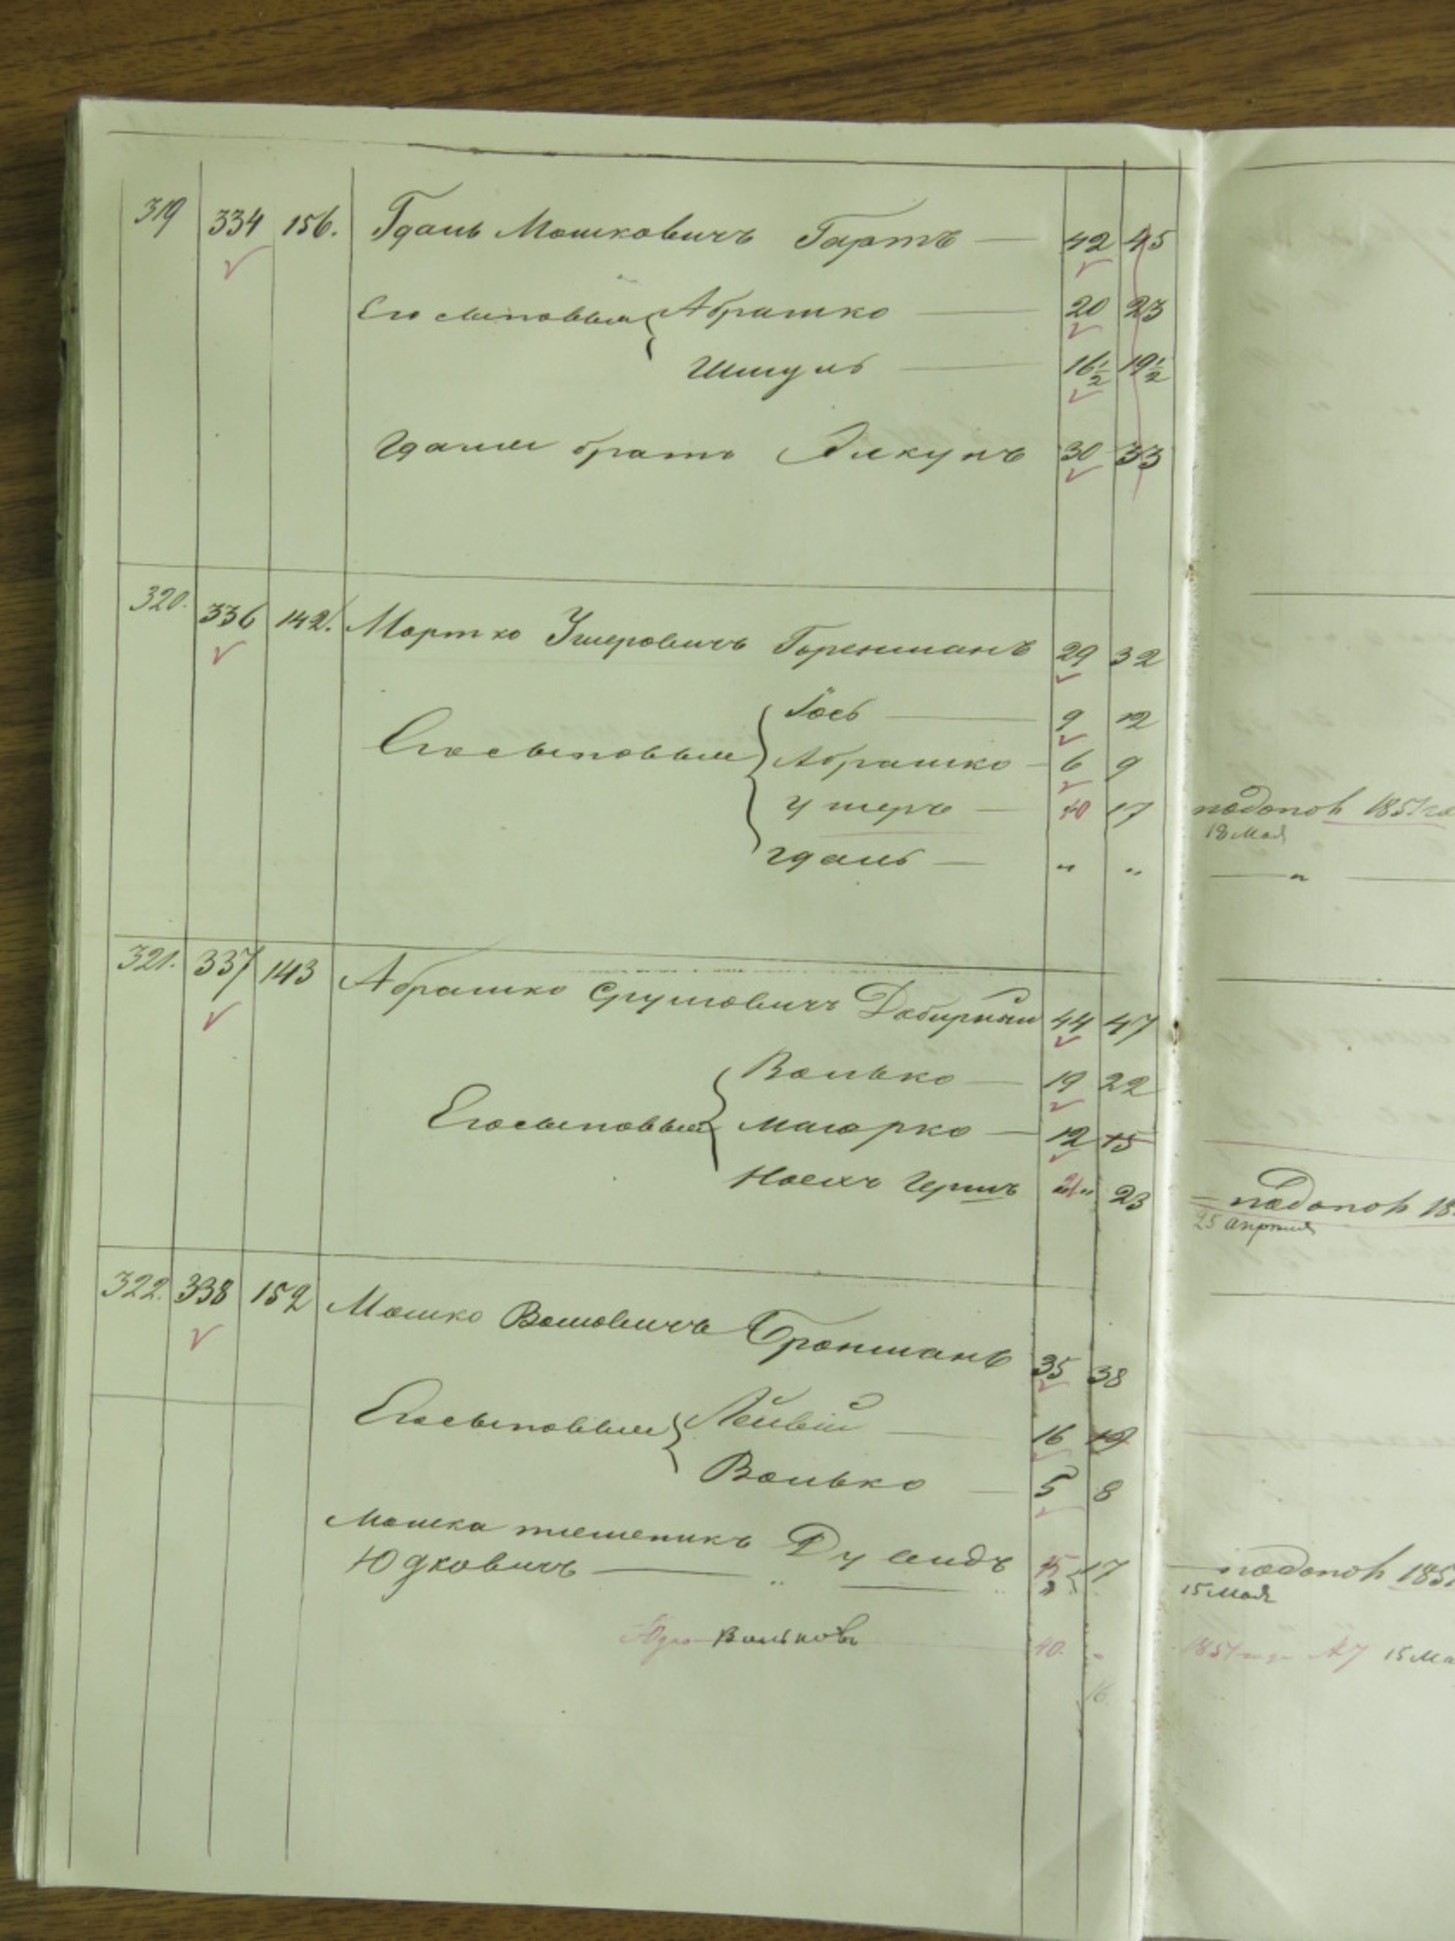 319 334 156. Гдаль Мошковичъ Гартъ — 42 45
Его сыновья { Абрашко — 20 23
Шмуль — 16½ 19½
Гдаля братъ Янкупъ 30 33
320. 336 142. Мортко Умеровичъ Горенманъ 29 32
Его сыновья { Іось — 9 12
Абрашко — 6 9
Умеръ — 17
подопол 1851 го
18 Мая
Гдаль — „ „
— „ —
321. 337 143 Абрашко Срулювичъ 44 47
Его сыновья { Волько — 19 22
Маюрко — 12 15
Ноехъ Гершъ 23
подопол 18
25 Апреля
322. 338 152 Мошко Волювичъ Бронманъ 35 38
Его сыновья { Лейвій — 16 19
Волько — 5 8
Мошка племеникъ Дуvидъ
Юдковичъ — 17
— подопол 185
15 Мая
Юдко Вольковъ 40. „
1851 года 15 Ма
16